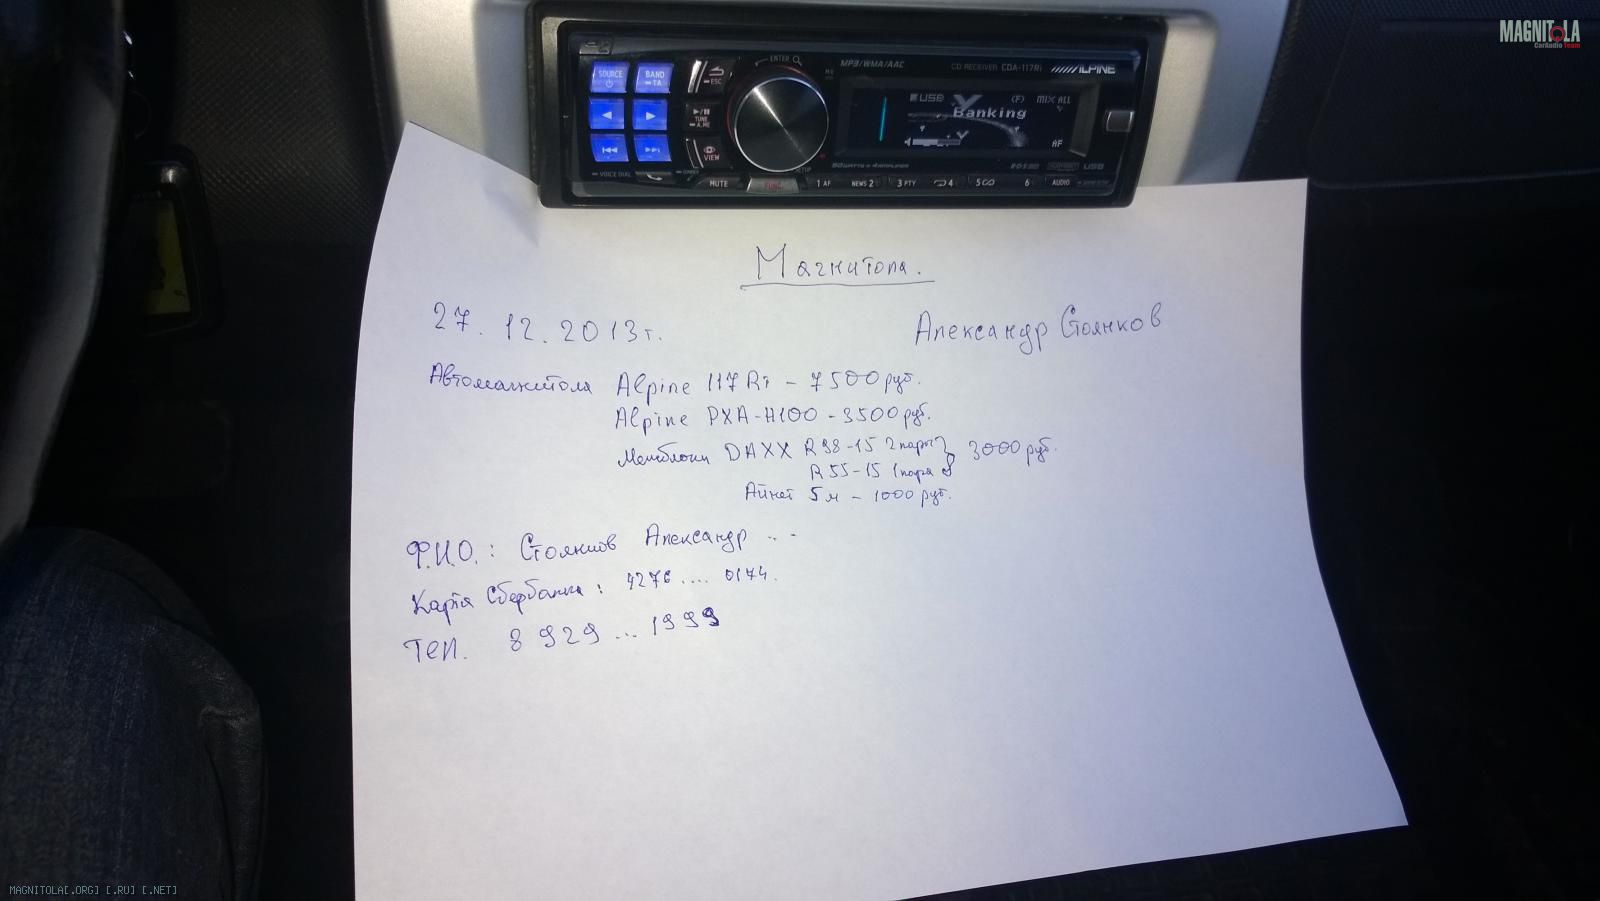 MAGNITOLA
CarAudio Team
SOURCE
BAND
TA
ESC
ENTER
MP3/WMA/AAC
CD RECEIVER CDA-117Ri ALPINE
USB (F) MIX ALL
Banking
AF
TUNE
A.ME
VIEW
VOICE DIAL
MUTE
FUNC
SETUP
1 AF
NEWS 2
3 PTY
4
5
6
AUDIO
USB
Магнитола.
27.12.2013г. Александр Стоянков
Автомагнитола Alpine 117Ri - 7500 руб.
Alpine PXA-H100 - 3500 руб.
DAXX R98-15 2 пары } 3000 руб.
R55-15 1 пара
5 м - 1000 руб.
Ф.И.О.: Стоянков Александр ...
Карта Сбербанка: 4276 .... 0174.
Тел. 8 929 ... 1999
MAGNITOLA[.ORG] [.RU] [.NET]